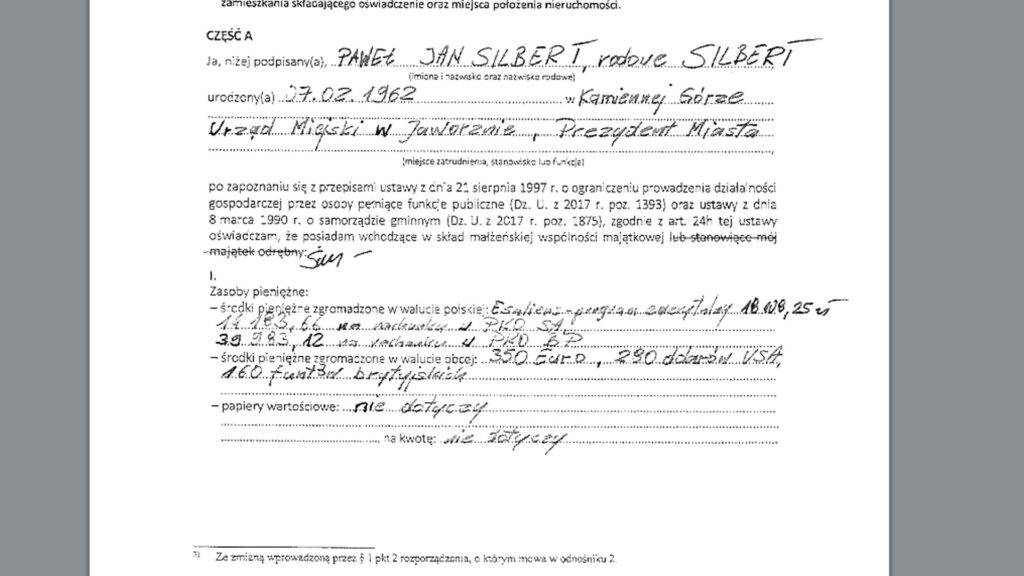 zamieszkania składającego oświadczenie oraz miejsca położenia nieruchomości.
CZĘŚĆ A
Ja, niżej podpisany(a), PAWEŁ JAN SILBERT, rodowe SILBERT
(imiona i nazwisko oraz nazwisko rodowe)
urodzony(a) 07.02.1962 w Kamiennej Górze
Urząd Miejski w Jaworznie, Prezydent Miasta
(miejsce zatrudnienia, stanowisko lub funkcja)
po zapoznaniu się z przepisami ustawy z dnia 21 sierpnia 1997 r. o ograniczeniu prowadzenia działalności
gospodarczej przez osoby pełniące funkcje publiczne (Dz. U. z 2017 r. poz. 1393) oraz ustawy z dnia
8 marca 1990 r. o samorządzie gminnym (Dz. U. z 2017 r. poz. 1875), zgodnie z art. 24h tej ustawy
oświadczam, że posiadam wchodzące w skład małżeńskiej wspólności majątkowej lub stanowiące mój
majątek odrębny:
I.
Zasoby pieniężne:
– środki pieniężne zgromadzone w walucie polskiej: program 25 zł
14 183,66 na rachunku w PKO SA
39 983,12 na rachunku w PKO BP
– środki pieniężne zgromadzone w walucie obcej: 350 Euro, 290 dolarów USA,
160 funtów brytyjskich
– papiery wartościowe: nie dotyczy
na kwotę: nie dotyczy
3) Ze zmianą wprowadzoną przez § 1 pkt 2 rozporządzenia, o którym mowa w odnośniku 2.